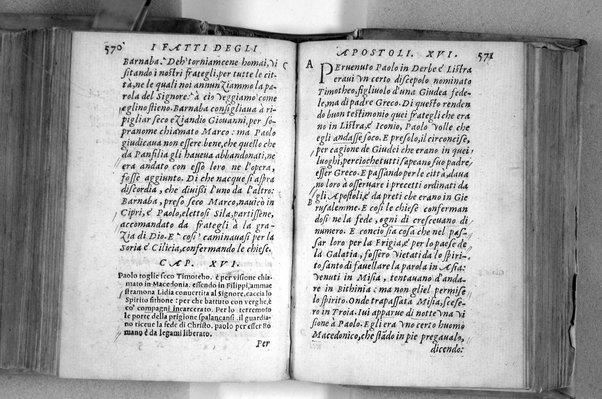 570 I FATTI DEGLI
Barnaba. Deh' torniamcene homai, vi
sitando i nostri frategli, per tutte le cit
tà, ne le quali noi annunziammo la pa
rola del Signore: à ciò veggiamo come
eglino stieno. Barnaba consigliaua à ri-
pigliar seco eziandio Giouanni, per so-
pranome chiamato Marco: ma Paolo
giudicaua non essere bene, che quello che
da Panfilia gli haueua abbandonati, ne
era andato con esso loro ne l'opera,
fosse aggiunto. Di che nacque sì aspra
discordia, che diuisi l'uno da l'altro:
Barnaba, preso seco Marco, nauicò in
Cipri, é Paolo, elettosi Sila, partissene,
accomandato da frategli à la gra-
zia di Dio. E così caminauasi per la
Soria é Cilicia, confermando le chiese.
CAP. XVI.
Paolo toglie seco Timotheo. è per visione chia-
mato in Macedonia. essendo in Filippi, amme
stramona Lidia conuertita al Signore, caccia lo
Spirito fithone: per che battuto con verghe è
co' compagni incarcerato. Per lo terremoto
le porte della prigione spalancansi. il guardia-
no riceue la fede di Christo. paolo per esser Ro
mano è da legami liberato.
Per
C
APOSTOLI. XVI. 571
A
PEruenuto Paolo in Derbe é Listra
eraui vn certo discepolo nominato
Timotheo, figliuolo d'una Giudea fede-
le, ma di padre Greco. Di questo renden
do buon testimonio quei frategli che era
no in Listra, é Iconio, Paolo volle che
egli andasse seco. E presolo, il circoncise,
per cagione de Giudei che erano in quei
luoghi, percioche tutti sapeano suo padre
esser Greco. E passando per le città, daua
no loro à osseruare i precetti ordinati da
gli Apostoli, é da preti che erano in Gie
rusalemme. E così le chiese conferman
dosi ne la fede, ogni dì cresceuano di
numero. E concio sia cosa che nel pas-
sar loro per la Frigia, é per lo paese de
la Galatia, fossero vietati da lo spiri-
to santo di fauellare la parola in Asia:
venuti in Misia, tentauano d'anda-
re in Bithinia: ma non gliel permise
lo spirito. Onde trapassata Misia, scese-
ro in Troia. Iui apparue di notte vna vi
sione à Paolo. Egli era vn certo huomo
Macedonico, che stādo in pie pregaualo,
dicendo:
B